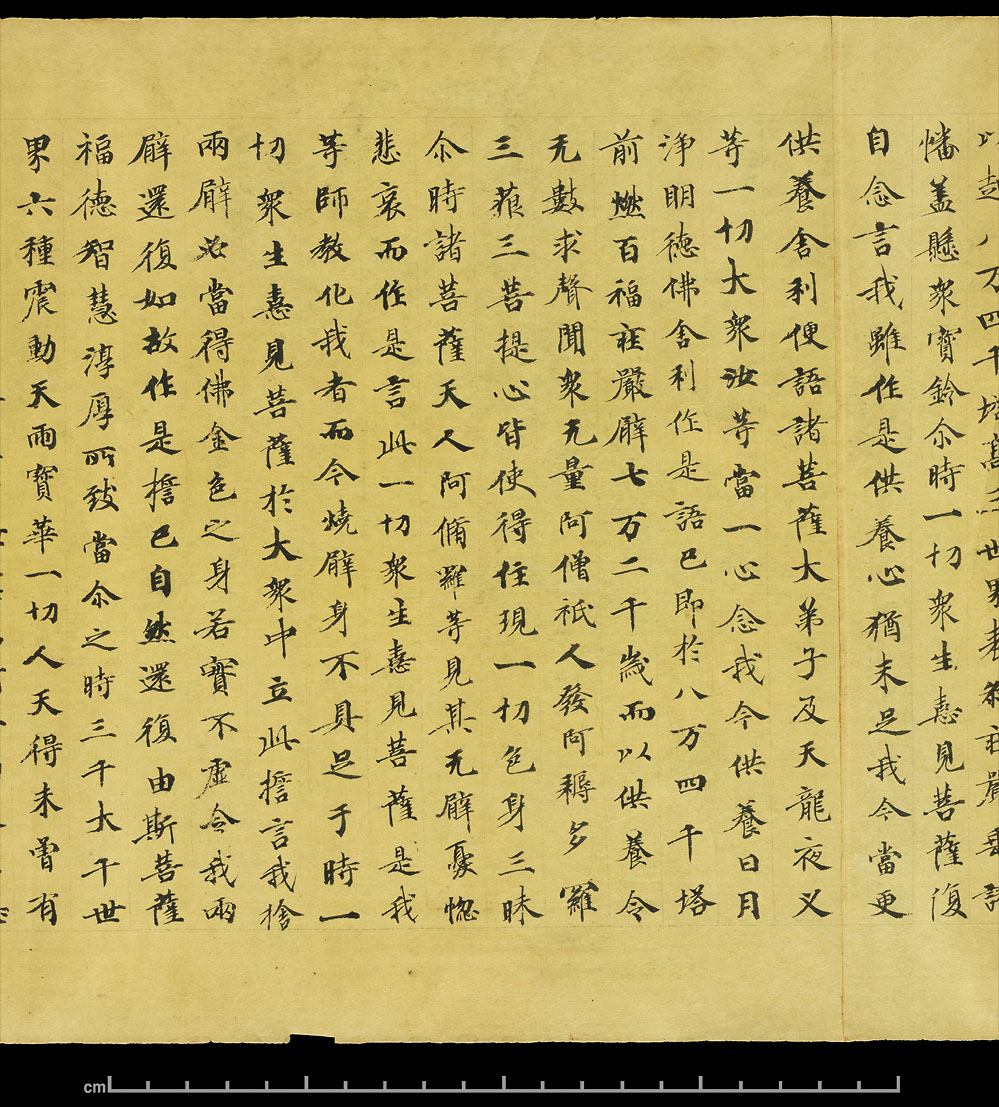 以起八万四千塔高三世界表刹莊嚴垂諸
幡蓋懸衆寶鈴尒時一切衆生憙見菩薩復
自念言我雖作是供養心猶未足我今當更
供養舍利便語諸菩薩大弟子及天龍夜叉
等一切大衆汝等當一心念我今供養日月
淨明德佛舍利作是語已即於八万四千塔
前燃百福莊嚴臂七万二千歲而以供養令
无數求聲聞衆无量阿僧祇人發阿耨多羅
三藐三菩提心皆使得住現一切色身三昧
尒時諸菩薩天人阿脩羅等見其无臂憂惱
悲哀而作是言此一切衆生憙見菩薩是我
等師教化我者而今燒臂身不具足于時一
切衆生憙見菩薩於大衆中立此誓言我捨
兩臂必當得佛金色之身若實不虛令我兩
臂還復如故作是誓已自然還復由斯菩薩
福德智慧淳厚所致當尒之時三千大千世
界六種震動天雨寶華一切人天得未曾有